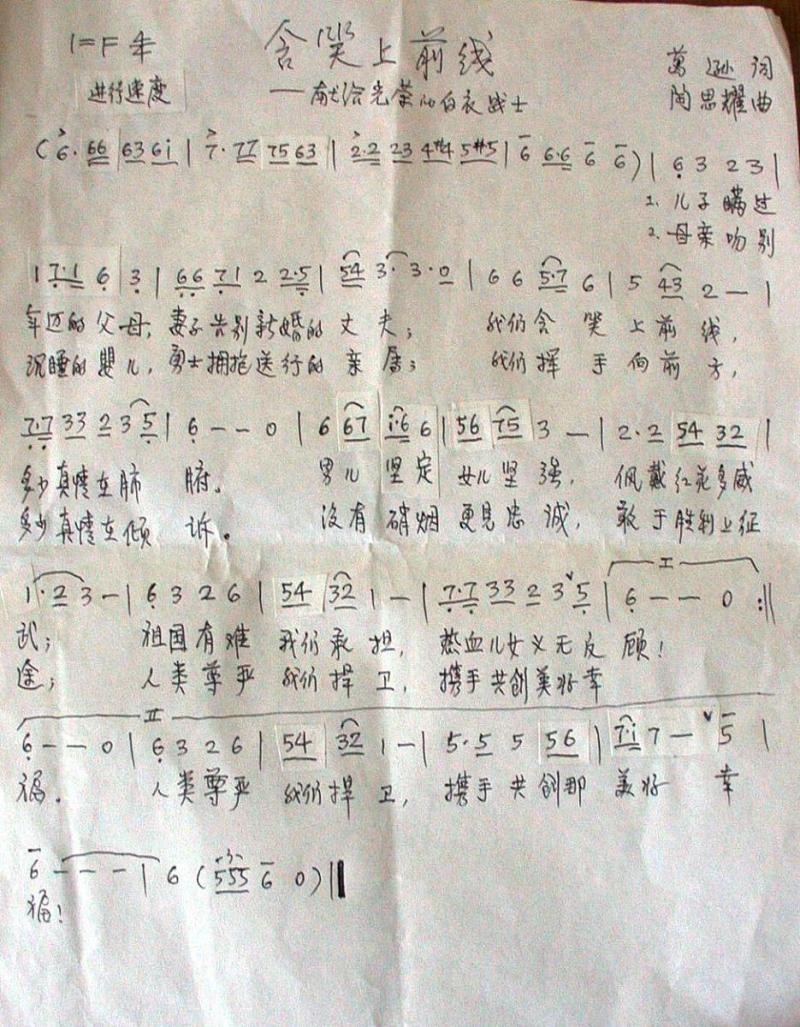 1=F 4/4 含笑上前线 葛逊词
进行速度 ——献给光荣的白衣战士 陶思耀曲
(6· 66 63 6i | 7· 77 75 63 | 2·2 23 4#4 5#5 | 6 6·6 6 6) | 6 3 2 3 |
1. 儿子瞒过
2. 母亲吻别
1 7·1 6 3 | 66 71 2 2·5 | 54 3· 3·0 | 6 6 5·7 6 | 5 43 2 — |
年迈的父母, 妻子告别新婚的丈夫; 我们含笑上前线,
沉睡的婴儿, 勇士拥抱送行的亲属; 我们挥手向前方,
7·7 33 2 3 5 | 6 — — 0 | 6 67 i·6 6 | 56 75 3 — | 2·2 54 32 |
多少真情在肺腑。 男儿坚定女儿坚强, 佩戴红花多威
多少真情在倾诉。 没有硝烟更见忠诚, 敢于胜利上征
1·2 3 — | 6 3 2 6 | 54 32 1 — | 7·7 33 2 3 5 | I 6 — — 0 :||
武; 祖国有难我们承担, 热血儿女义无反顾!
途; 人类尊严我们捍卫, 携手共创美好幸
II
6 — — 0 | 6 3 2 6 | 54 32 1 — | 5·5 5 56 | 7·i 7 — 5 |
福。 人类尊严我们捍卫, 携手共创那美好幸
6 — — — | 6 (555 6 0) ||
福!